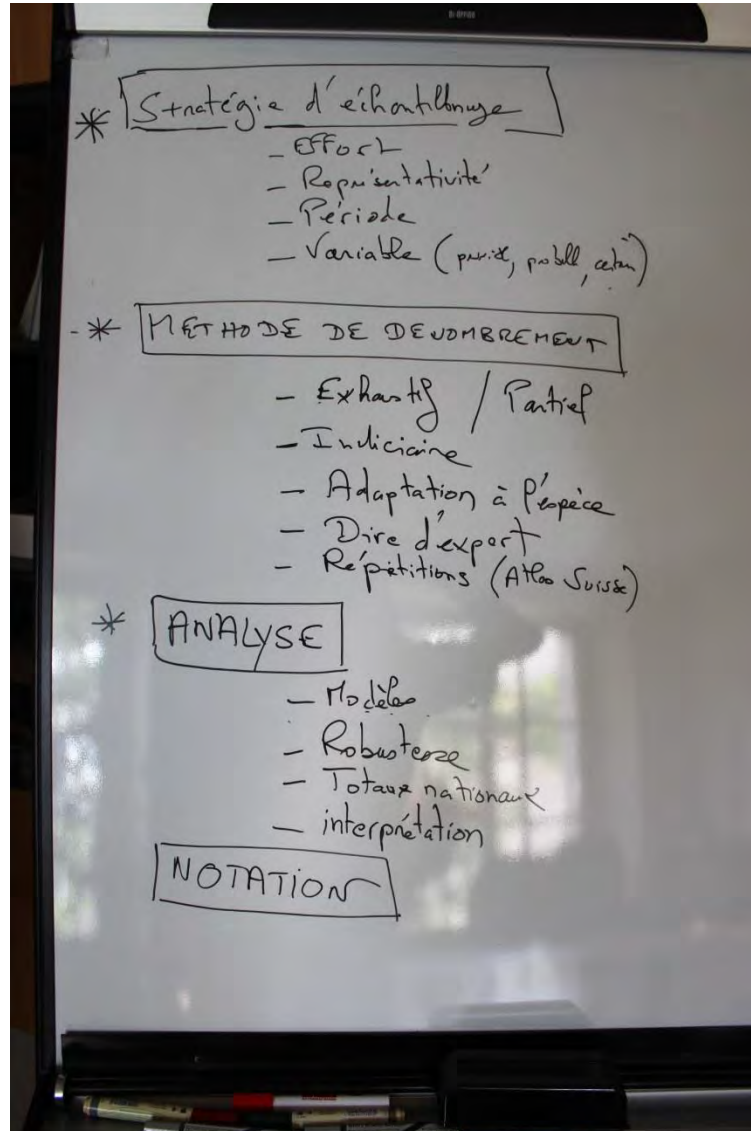 * Stratégie d'échantillonnage
- Effort
- Représentativité
- Période
- Variable (
-* METHODE DE DENOMBREMENT
- Exhaustif / Partiel
- Indiciaire
- Adaptation à l'espèce
- Dire d'expert
- Répétitions (Atlas Suisse)
* ANALYSE
- Modèles
- Robustesse
- Totaux nationaux
- interprétation
NOTATION